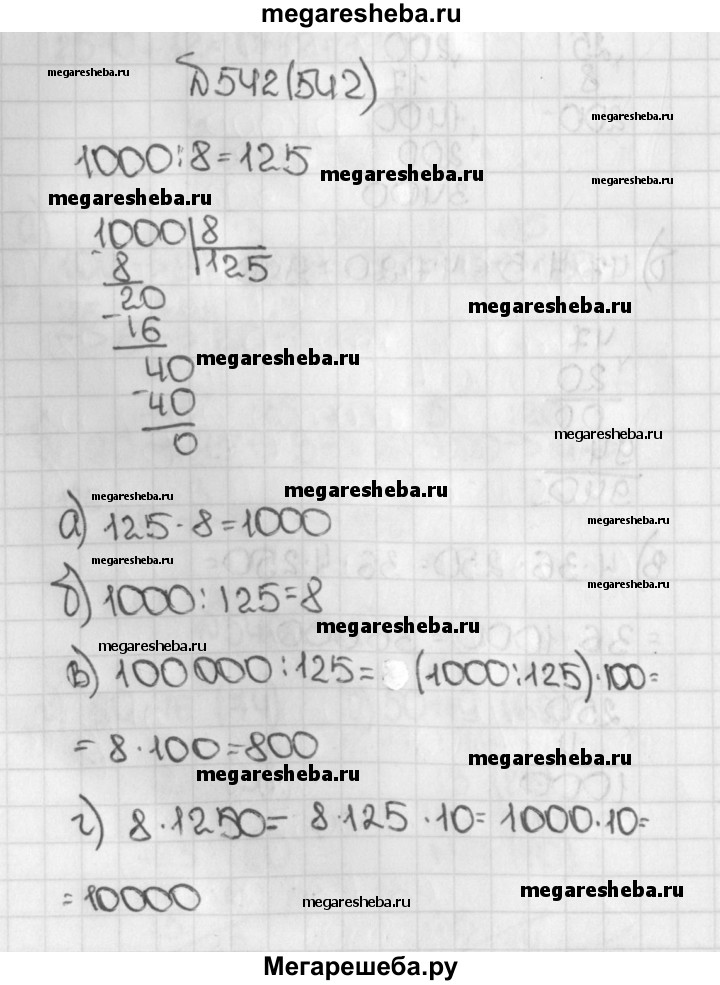 megaresheba.ru
megaresheba.ru
№542(542)
megaresheba.ru
1000:8=125
megaresheba.ru
megaresheba.ru
1000 8
- 8 125
20
megaresheba.ru
- 16
megaresheba.ru
40
- 40
megaresheba.ru
0
megaresheba.ru
megaresheba.ru
megaresheba.ru
а) 125·8=1000
megaresheba.ru
megaresheba.ru
б) 1000:125=8
megaresheba.ru
megaresheba.ru
в) 100000:125= (1000:125)·100=
= 8·100=800
megaresheba.ru
megaresheba.ru
г) 8·1250= 8·125·10= 1000·10=
= 10000
megaresheba.ru
megaresheba.ru
Мегарешеба.ру